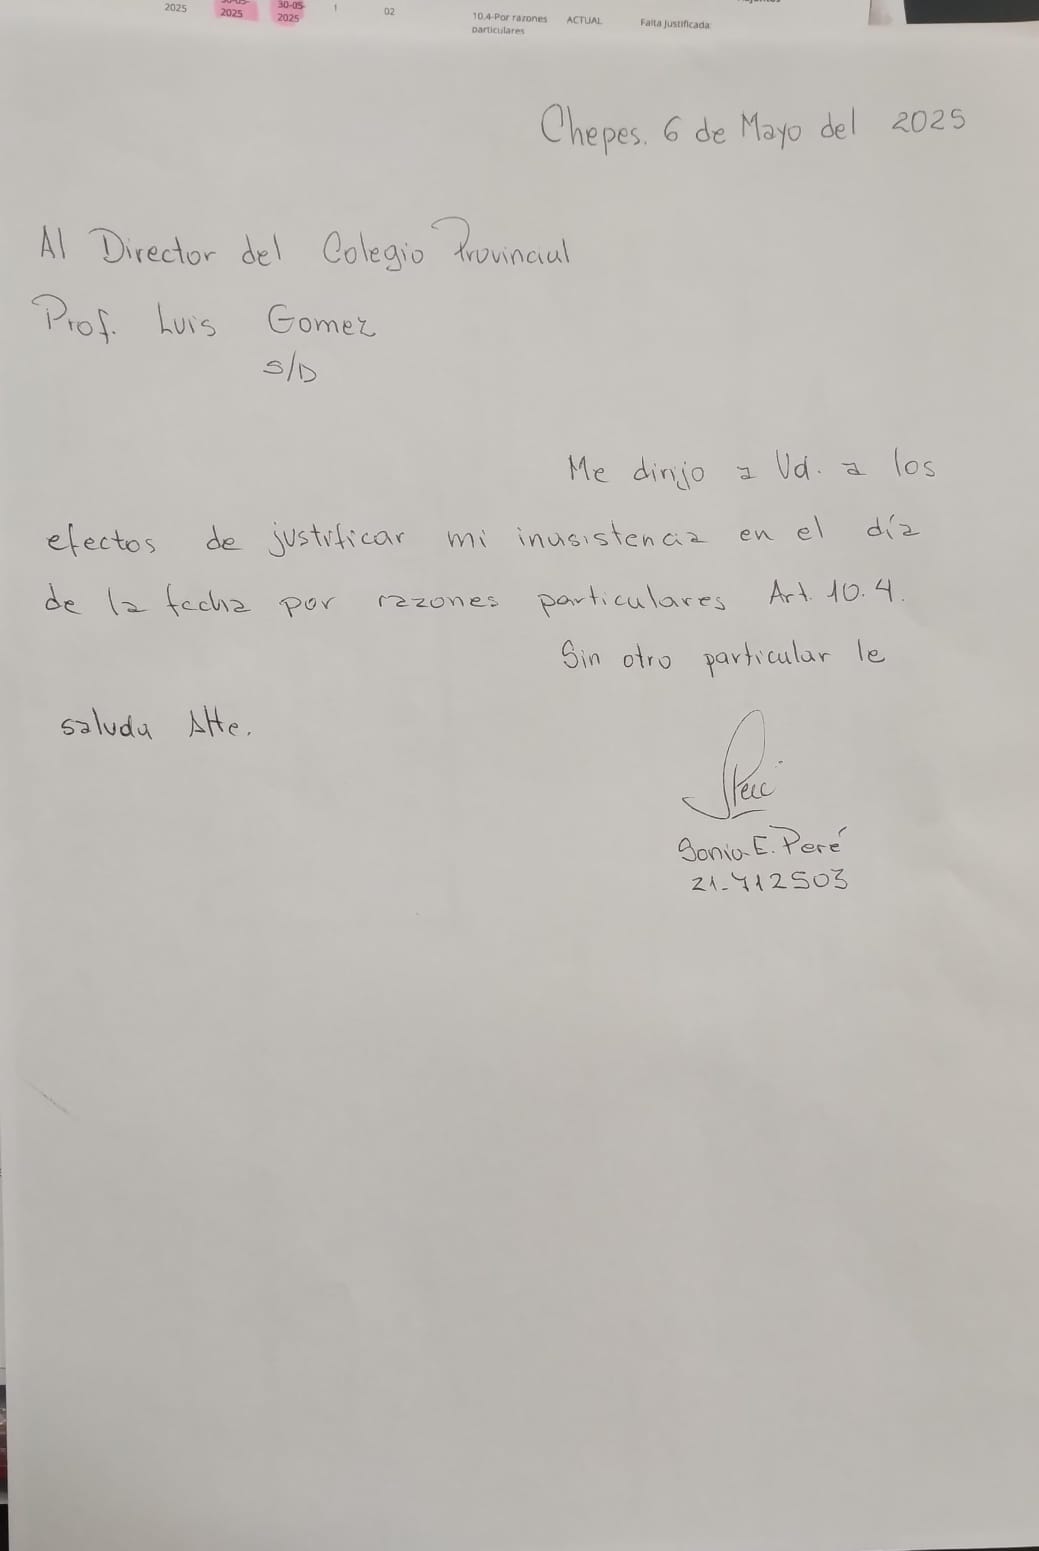 2025 30-05-2025 30-05-2025 1 02 10.4-Por razones particulares ACTUAL Falta Justificada
Chepes. 6 de Mayo del 2025
Al Director del Colegio Provincial
Prof. Luis Gomez
S/D
Me dirijo a Vd. a los
efectos de justificar mi inasistencia en el día
de la fecha por razones particulares Art. 10.4.
Sin otro particular le
saluda Atte.
Sonia E. Peré
21-712503